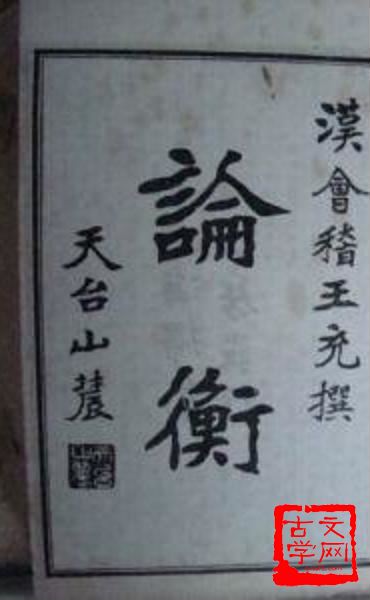 漢會稽王充撰
論衡
天台山農
古文
学网